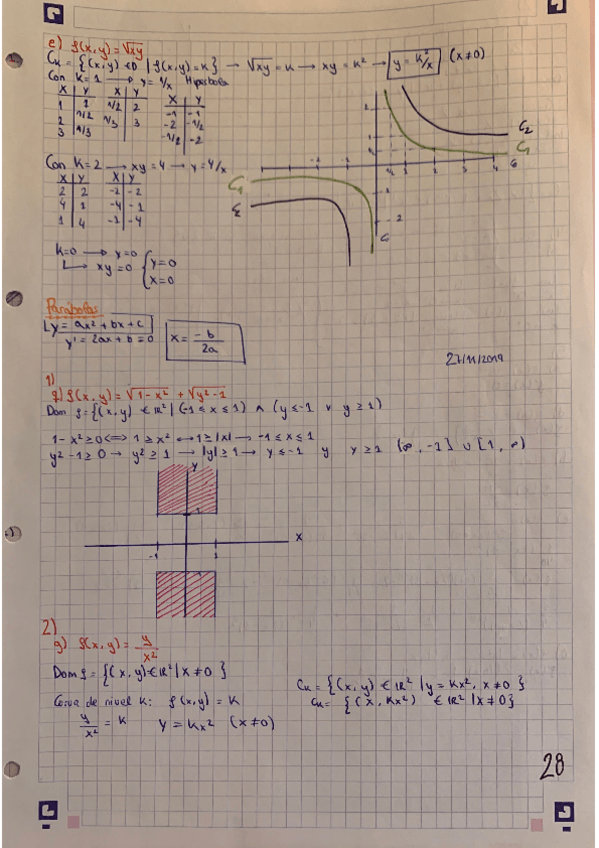 e) f(x,y) = √xy
Ck = {(x,y) ∈ D | f(x,y) = k} → √xy = k → xy = k² → y = k²/x (x≠0)
Con k=1 → y = 1/x Hipérbola
x | y x | y x | y
1 | 1 1/2 | 2 -1 | -1
2 | 1/2 1/3 | 3 -2 | -1/2
3 | 1/3 -1/2 | -2
C2
C1
Con k=2 → xy = 4 → y = 4/x
x | y x | y
2 | 2 -2 | -2
4 | 1 -4 | -1
1 | 4 -1 | -4
C1
k=0 → y=0
↳ xy=0 { y=0
x=0
Parábolas
↳ y = ax² + bx + c
y' = 2ax + b = 0
x = -b/2a
27/11/2019
1)
f(x,y) = √1-x² + √y²-1
Dom f = {(x,y) ∈ ℝ² | (-1 ≤ x ≤ 1) ∧ (y ≤ -1 ∨ y ≥ 1)}
1-x² ≥ 0 ⟺ 1 ≥ x² ↔ 1 ≥ |x| → -1 ≤ x ≤ 1
y²-1 ≥ 0 → y² ≥ 1 → |y| ≥ 1 → y ≤ -1 y y ≥ 1 (∞, -1] ∪ [1, ∞)
y
1
x
-1 1
2)
g) f(x,y) = y/x²
Dom f = {(x,y) ∈ ℝ² | x ≠ 0}
Curva de nivel k: f(x,y) = k
y/x² = k y = kx² (x≠0)
Ck = {(x,y) ∈ ℝ² | y = kx², x ≠ 0}
Ck = {(x, kx²) ∈ ℝ² | x ≠ 0}
28